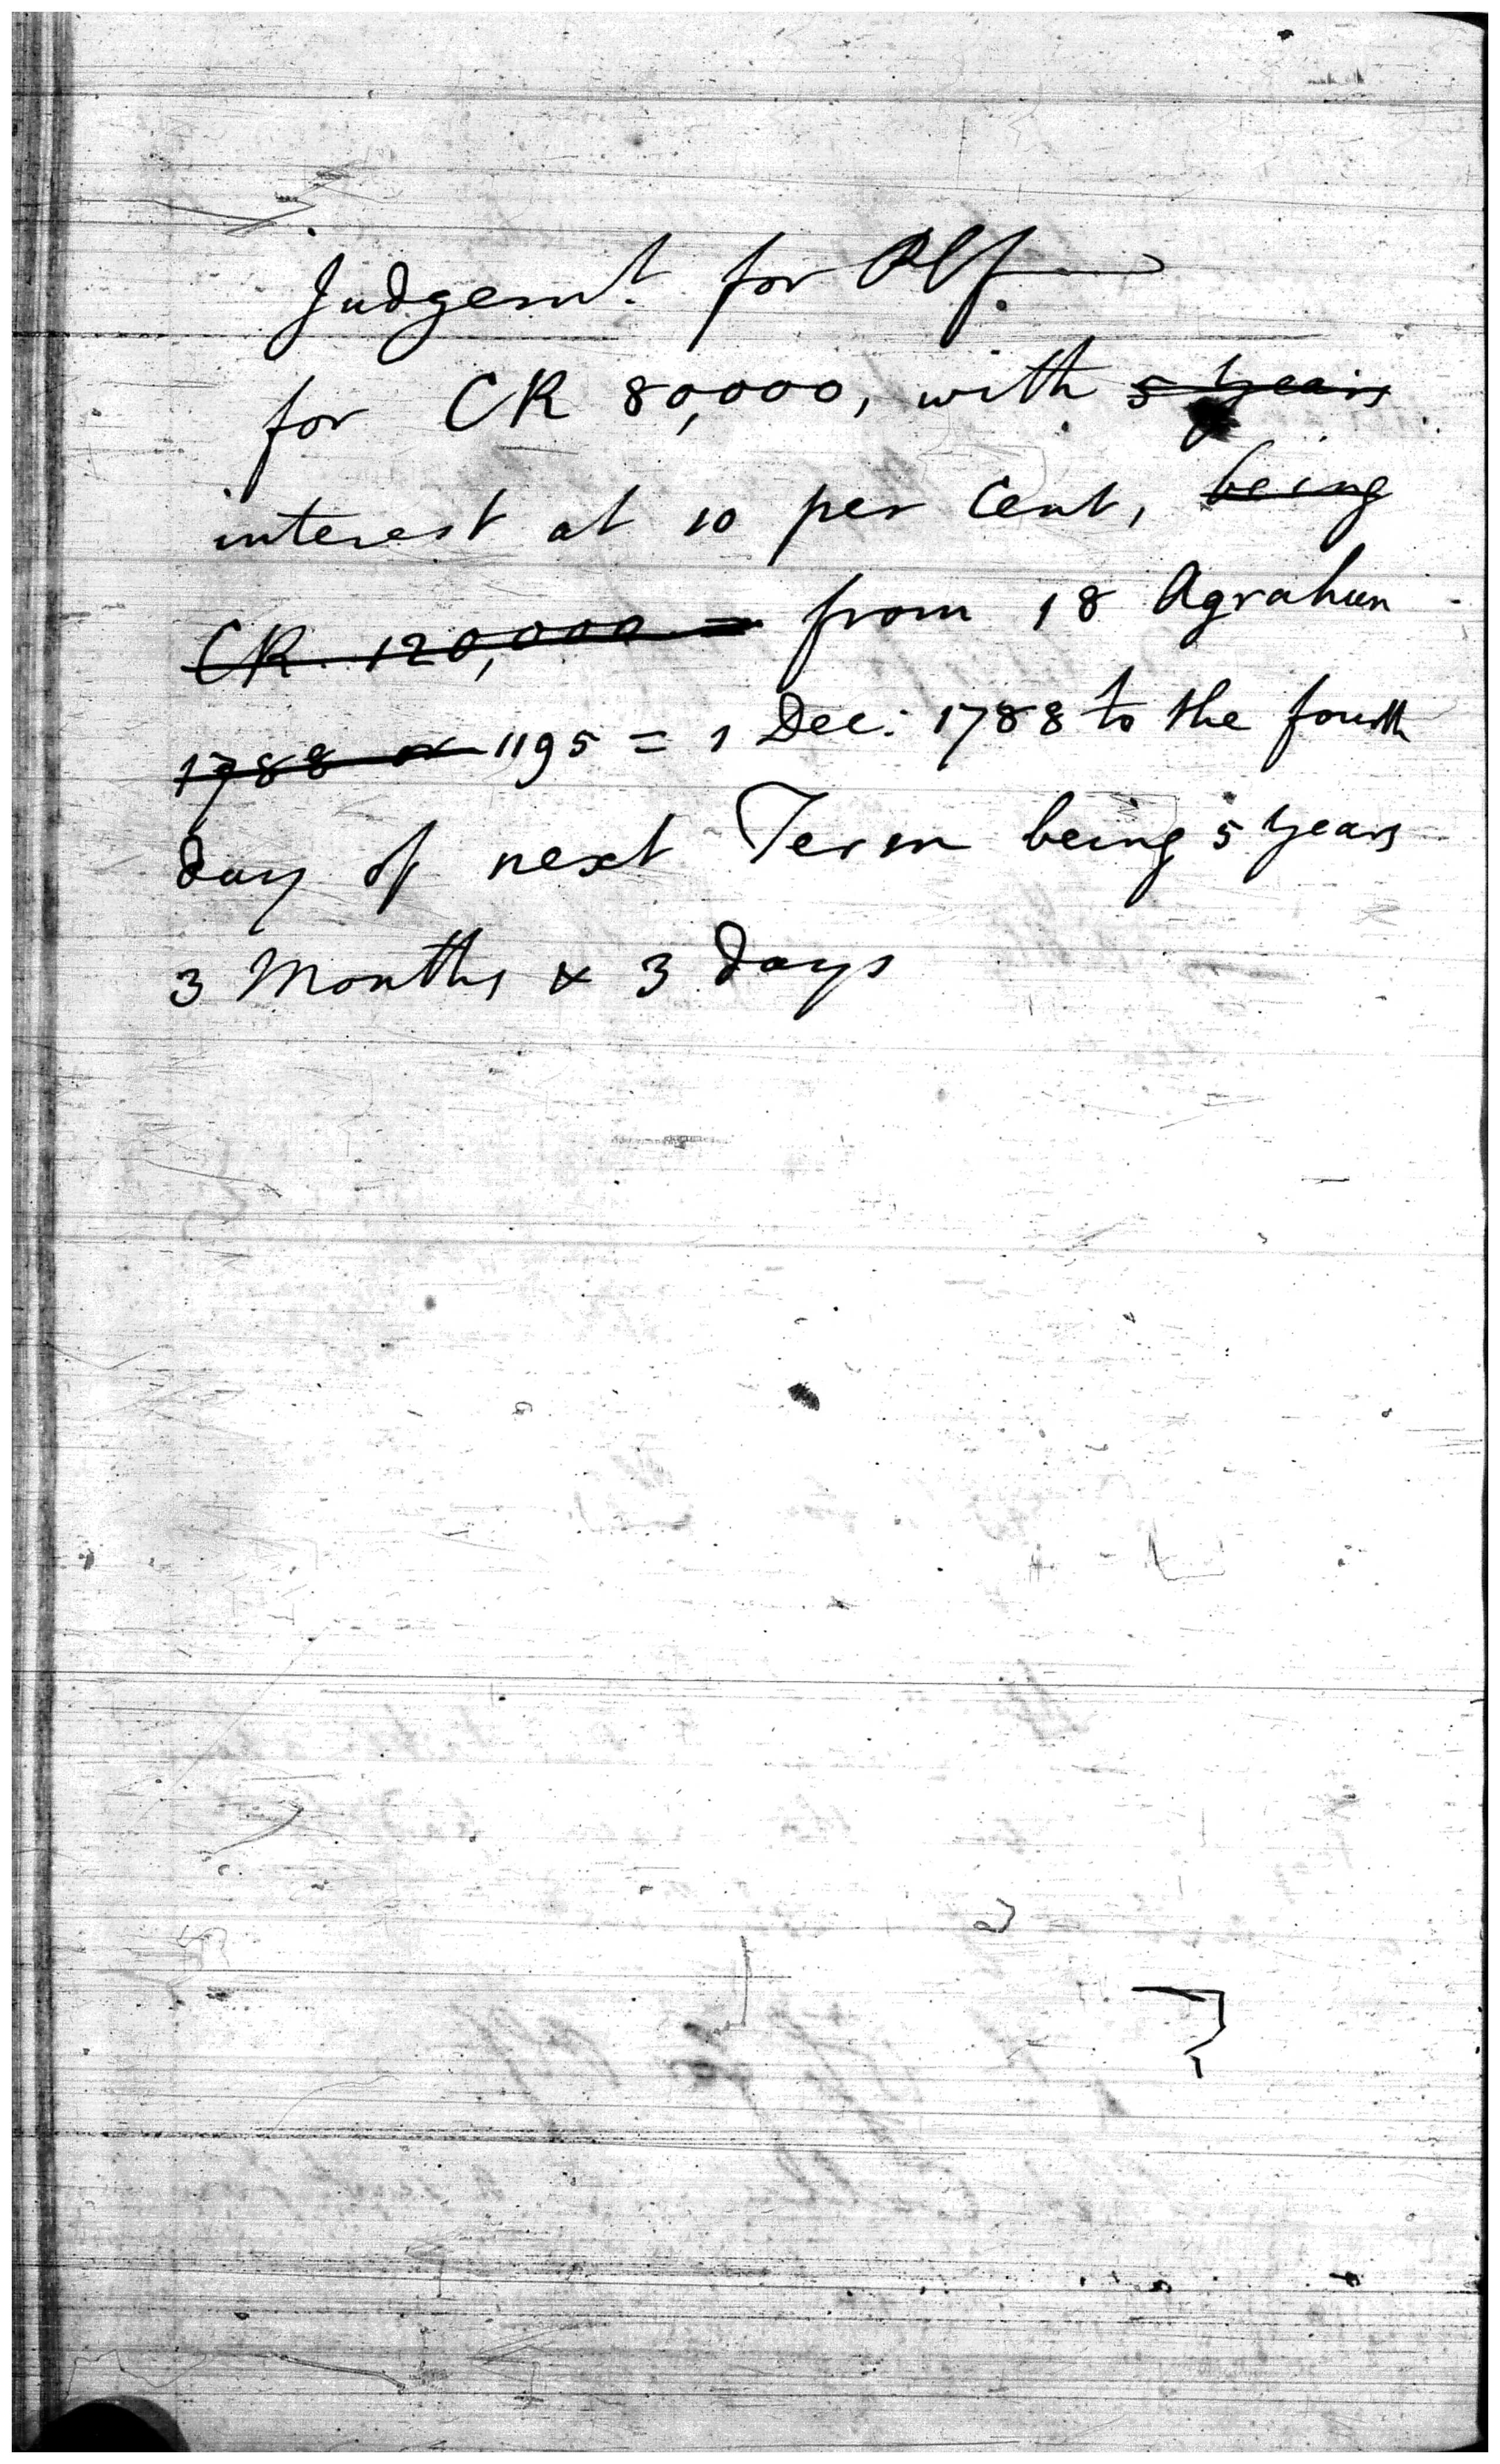 Judgemt. for Plf.
for CR 80,000, with 5 years
interest at 10 per Cent, being
CR. 120,000 = from 18 Agrahun
1788 or 1195 = 1 Dec: 1788 to the fourth
day of next Term being 5 years
3 Months & 3 days